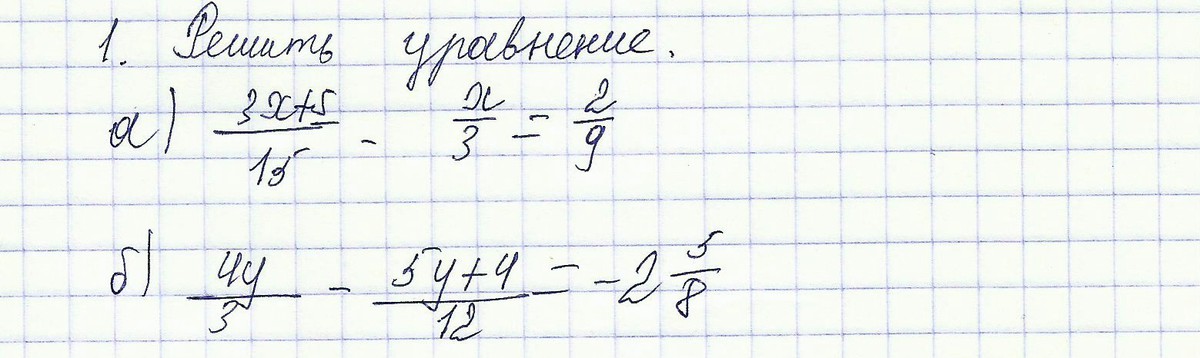 1. Решить уравнение.
а) (3x+5)/15 - x/3 = 2/9
б) 4y/3 - (5y+4)/12 = -2 5/8